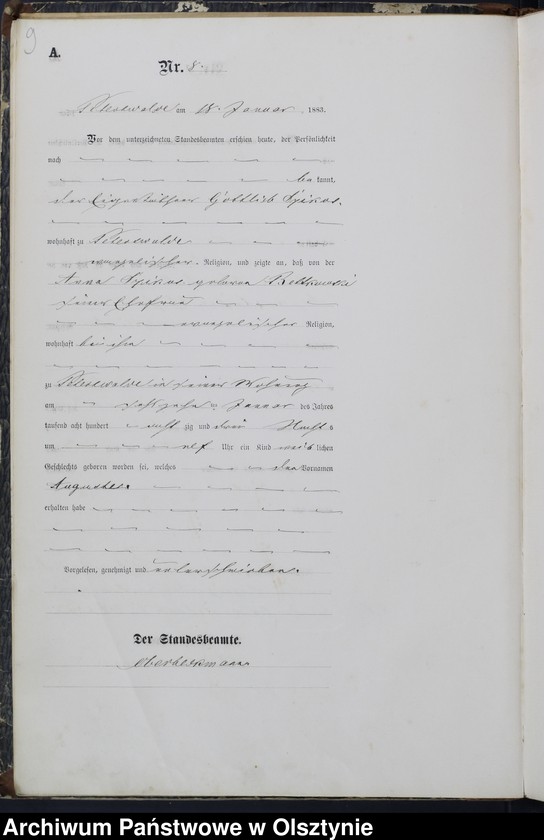 9
A.
Nr. 8.
am 18. Januar 1883.
Vor dem unterzeichneten Standesbeamten erschien heute, der Persönlichkeit
nach
be kannt,
der Eigenthümer Gottlieb
wohnhaft zu
evangelischer Religion, und zeigte an, daß von der
Anna geborene
seiner Ehefrau
evangelischer Religion,
wohnhaft bei ihm
zu in seiner Wohnung
am Januar des Jahres
tausend acht hundert acht zig und drei Nachts
um elf Uhr ein Kind weib lichen
Geschlechts geboren worden sei, welches den Vornamen
Auguste
erhalten habe
Vorgelesen, genehmigt und unterschrieben.
Der Standesbeamte.
Archiwum Państwowe w Olsztynie